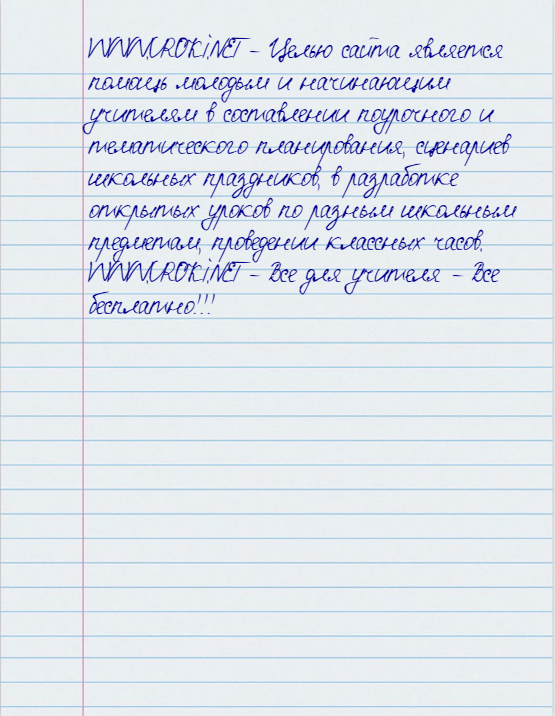 WWW.UROKI.NET – Целью сайта является
помощь молодым и начинающим
учителям в составлении поурочного и
тематического планирования, сценариев
школьных праздников, в разработке
открытых уроков по разным школьным
предметам, проведении классных часов.
WWW.UROKI.NET – Все для учителя – Все
бесплатно!!!